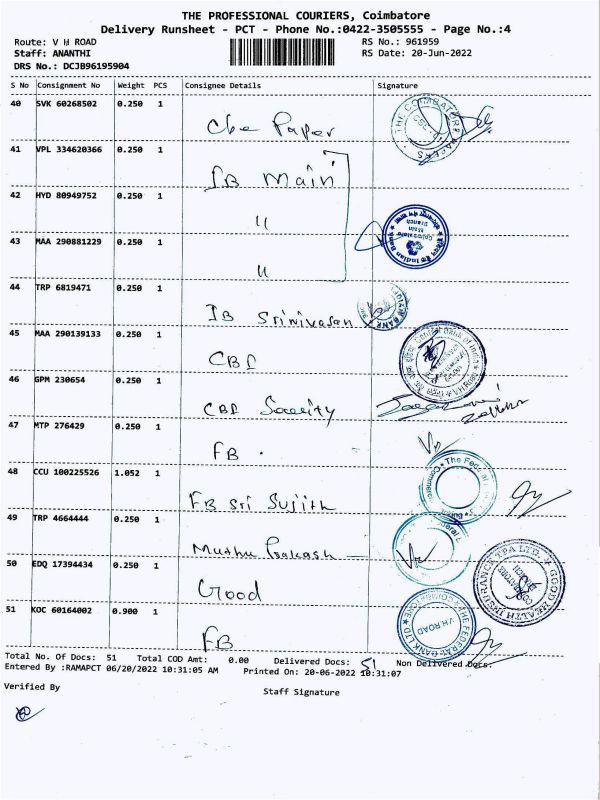 THE PROFESSIONAL COURIERS, Coimbatore
Delivery Runsheet - PCT - Phone No.:0422-3505555 - Page No.:4
Route: V H ROAD RS No.: 961959
Staff: ANANTHI RS Date: 20-Jun-2022
DRS No.: DCJB96195904
S No Consignment No Weight PCS Consignee Details Signature
40 SVK 60268502 0.250 1
Cbe Paper
41 VPL 334620366 0.250 1
IB Main
42 HYD 80949752 0.250 1
"
43 MAA 290881229 0.250 1
"
44 TRP 6819471 0.250 1
IB Srinivasan
45 MAA 290139133 0.250 1
CBI
46 GPM 230654 0.250 1
CBI Security
47 MTP 276429 0.250 1
FB
48 CCU 100225526 1.052 1
FB Sri Sujith
49 TRP 4664444 0.250 1
Muthu Prakash
50 EDQ 17394434 0.250 1
Good
51 KOC 60164002 0.900 1
FB
THE FEDERAL BANK LTD
V.H.ROAD
GOOD HEALTH INSURANCE TPA LTD.
Total No. Of Docs: 51 Total COD Amt: 0.00 Delivered Docs: 51 Non Delivered Docs:
Entered By :RAMAPCT 06/20/2022 10:31:05 AM Printed On: 20-06-2022 10:31:07
Verified By Staff Signature